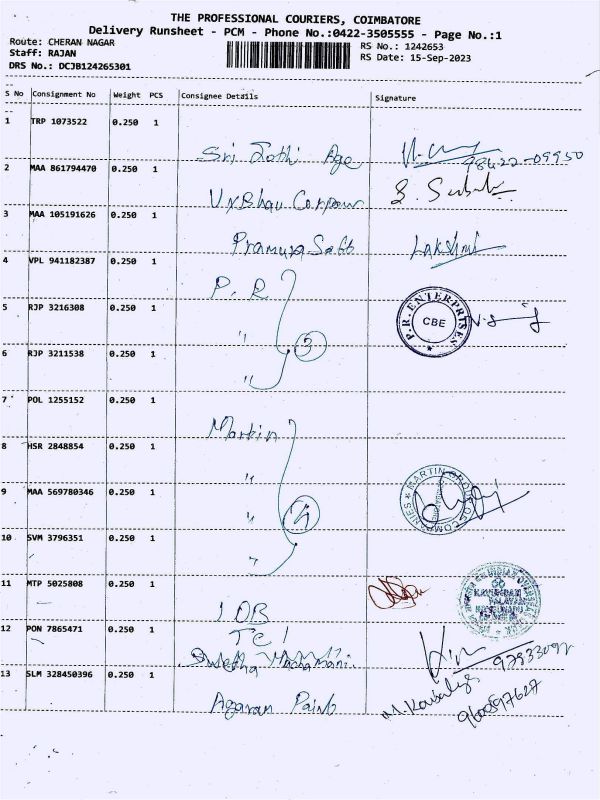 THE PROFESSIONAL COURIERS, COIMBATORE
Delivery Runsheet - PCM - Phone No.:0422-3505555 - Page No.:1
Route: CHERAN NAGAR
RS No.: 1242653
Staff: RAJAN
RS Date: 15-Sep-2023
DRS No.: DCJB124265301
S No Consignment No Weight PCS Consignee Details Signature
1 TRP 1073522 0.250 1
Sri Jothi Age
98422-09950
2 MAA 861794470 0.250 1
3 MAA 105191626 0.250 1
Lakshmi
4 VPL 941182387 0.250 1
P.R
5 RJP 3216308 0.250 1
"
P.R. ENTERPRISES
CBE
3
6 RJP 3211538 0.250 1
"
7 POL 1255152 0.250 1
Martin
8 HSR 2848854 0.250 1
"
9 MAA 569780346 0.250 1
"
4
MARTIN GROUP OF COMPANIES
10 SVM 3796351 0.250 1
"
11 MTP 5025808 0.250 1
IOB
12 PON 7865471 0.250 1
Swetha
13 SLM 328450396 0.250 1